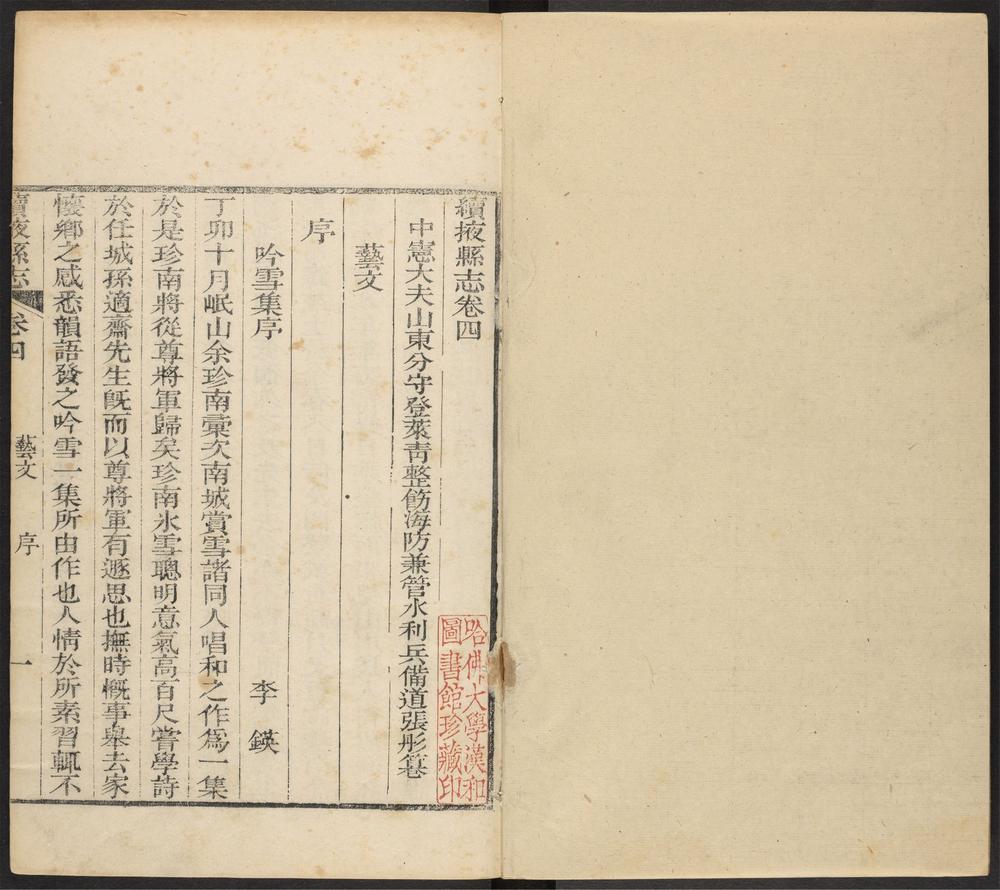 續掖縣志卷四
中憲大夫山東分守登萊靑整飭海防兼管水利兵備道張彤纂
藝文
序
吟雪集序 李鍈
丁卯十月岷山余珍南彙次南城賞雪諸同人唱和之作爲一集
於是珍南將從尊將軍歸矣珍南氷雪聰明意氣高百尺嘗學詩
於任城孫適齋先生旣而以尊將軍有遯思也撫時慨事舉去家
懷鄉之感悉韻語發之吟雪一集所由作也人情於所素習輒不
續掖縣志 卷四 藝文 序 一
哈佛大學漢和
圖書館珍藏印